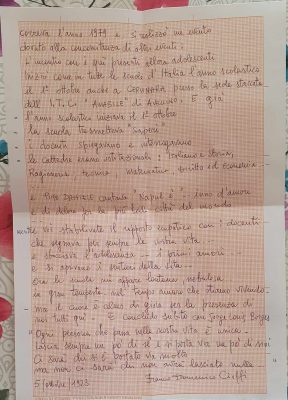 Correva l'anno 1979 e si realizzò un evento
dovuto alla concomitanza di altri eventi:
L'incontro con i qui presenti allora adolescenti
Iniziò come in tutte le scuole d'Italia l'anno scolastico
il 1° ottobre anche a CERVINARA presso la sede staccata
dell' I.T.C. "AMABILE" di AVELLINO. E già
l'anno scolastico iniziava il 1° ottobre
la scuola trasmetteva "saperi"
i docenti spiegavano e interrogavano
le cattedre erano : italiano e storia,
Ragioneria, tecnica, matematica, diritto ed economia
e PINO DANIELE cantava "Napul è" : inno d'amore
e di della fra le più belle città del mondo
mentre voi stabilivate il rapporto empatico con i docenti
che segnava per sempre la vostra vita
e sbocciava l'adolescenza - i primi amori
e si aprivano i sentieri della vita
Ora le nuvole mi appare lontana nebulosa
in gran tempesta nel tempo amaro che stiamo vivendo
ma il cuore è colmo di gioia per la presenza di
noi tutti qui. E concludo subito con Jorge Louis Borges
"Ogni persona che passa nella nostra vita è unica.
Lascia sempre un po' di sé e si porta via un po' di noi
Ci sarà chi si è portato via molto
ma non ci sarà chi non avrà lasciato nulla
5 1923 Franco Domenico Cioffi